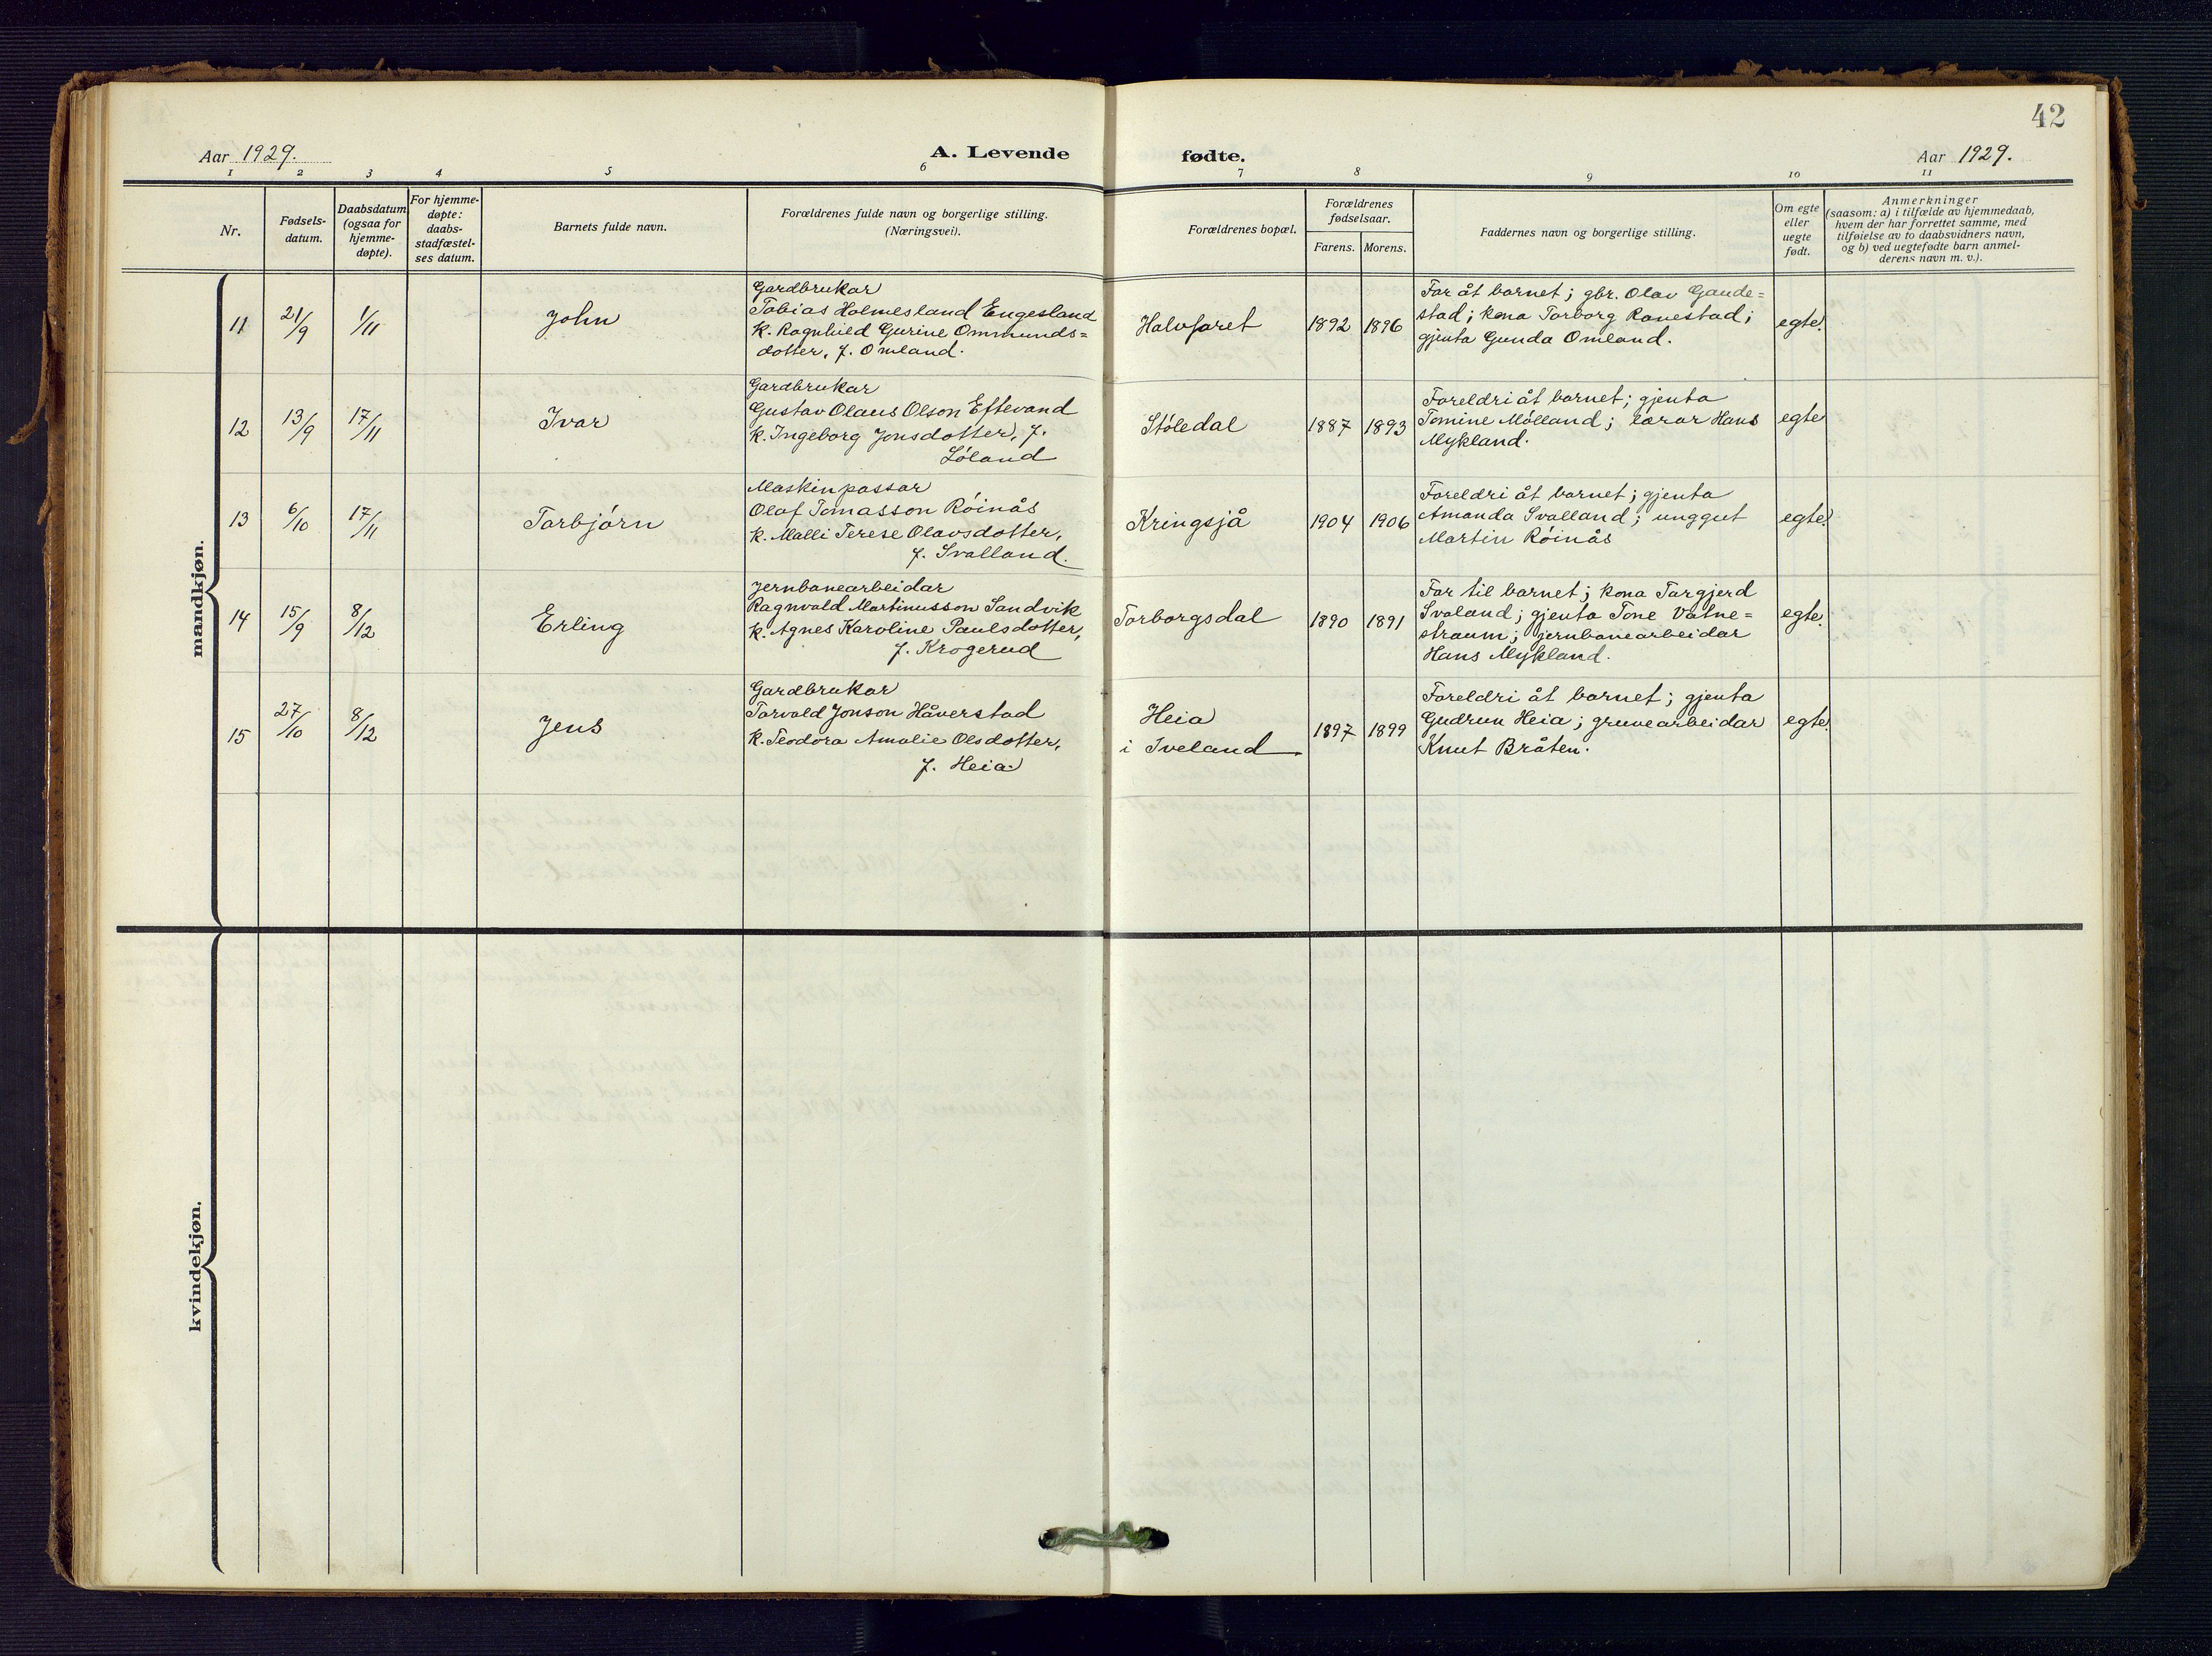 42
Aar 1929.
A. Levende fødte.
Aar 1929.
1 2 3 4 5 6 7 8 9 10 11
Nr.
Fødsels-
datum.
Daabsdatum
(ogsaa for
hjemme-
døpte).
For hjemme-
døpte:
daabs-
stadfæstel-
ses datum.
Barnets fulde navn.
Forældrenes fulde navn og borgerlige stilling.
(Næringsvei).
Forældrenes bopæl.
Forældrenes
fødselsaar.
Farens. Morens.
Faddernes navn og borgerlige stilling.
Om egte
eller
uegte
født.
Anmerkninger
(saasom: a) i tilfælde av hjemmedaab,
hvem der har forrettet samme, med
tilføielse av to daabsvidners navn,
og b) ved uegtefødte barn anmel-
derens navn m. v.).
mandkjøn.
11 21/9 1/11 John
Gardbrukar
Tobias Holmesland Engesland
k. Ragnhild Gurine Ommunds=
dotter, f. Omland.
Halvfaret 1892 1896
Far åt barnet; gbr. Olav Gaude=
stad; kona Torborg Ranestad;
gjenta Gunda Omland.
egte.
12 13/9 17/11 Ivar
Gardbrukar
Gustav Olaus Olson Eftevand
k. Ingeborg Jonsdotter, f.
Løland
Støledal 1887 1893
Foreldri åt barnet; gjenta
Tomine Mølland; lærar Hans
Mykland.
egte
13 6/10 17/11 Torbjørn
Maskinpassar
Olaf Tomasson Røinås
k. Malli Terese Olavsdotter,
f. Svalland.
Kringsjå 1904 1906
Foreldri åt barnet; gjenta
Amanda Svalland; unggut
Martin Røinås
egte.
14 15/9 8/12 Erling
Jernbanearbeidar
Ragnvald Martinusson Sandvik
k. Agnes Karoline Paulsdotter,
f. Krogerud
Torborgsdal 1890 1891
Far til barnet; kona Targjerd
Svaland; gjenta Tone Vatne=
straum; jernbanearbeidar
Hans Mykland.
egte.
15 27/10 8/12 Jens
Gardbrukar
Torvald Jonson Håverstad
k. Teodora Amalie Olsdotter,
f. Heia
Heia
i Iveland
1897 1899
Foreldri åt barnet; gjenta
Gudrun Heia; gruvearbeidar
Knut Bråten.
egte.
kvindekjøn.